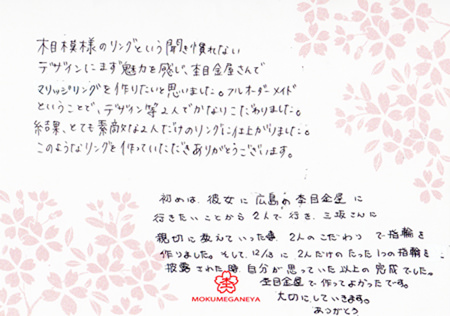 木目模様のリングという聞き慣れない
デザインにまず魅力を感じ、杢目金屋さんで
マリッジリングを作りたいと思いました。フルオーダーメイド
ということで、デザイン等2人でかなりこだわりました。
結果、とても素敵な2人だけのリングに仕上がりました。
このようなリングを作っていただきありがとうございます。
初めは、彼女に広島の杢目金屋に
行きたいことから2人で行き、三坂さんに
親切に教えていった時、2人のこだわりで指輪を
作りました。そして、12/13に、2人だけのたった1つの指輪を
披露された時、自分が思っていた以上の完成でした。
杢目金屋で作ってよかったです。
大切にしていきます。
ありがとう
MOKUMEGANEYA